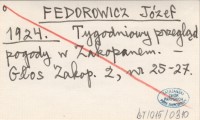 FEDOROWICZ Józef
1924. Tygodniowy przegląd
pogody w Zakopanem.
Głos Zakop. 2, nr 25-27.